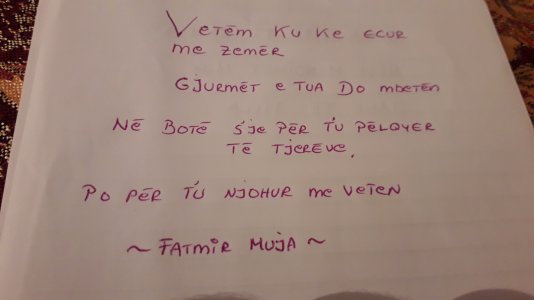 Vetëm ku ke ecur
me zemër
Gjurmët e tua do mbetën
Në botë s'je për t'u pëlqyer
të tjerëve.
Po për t'u njohur me veten
~ Fatmir Muja ~